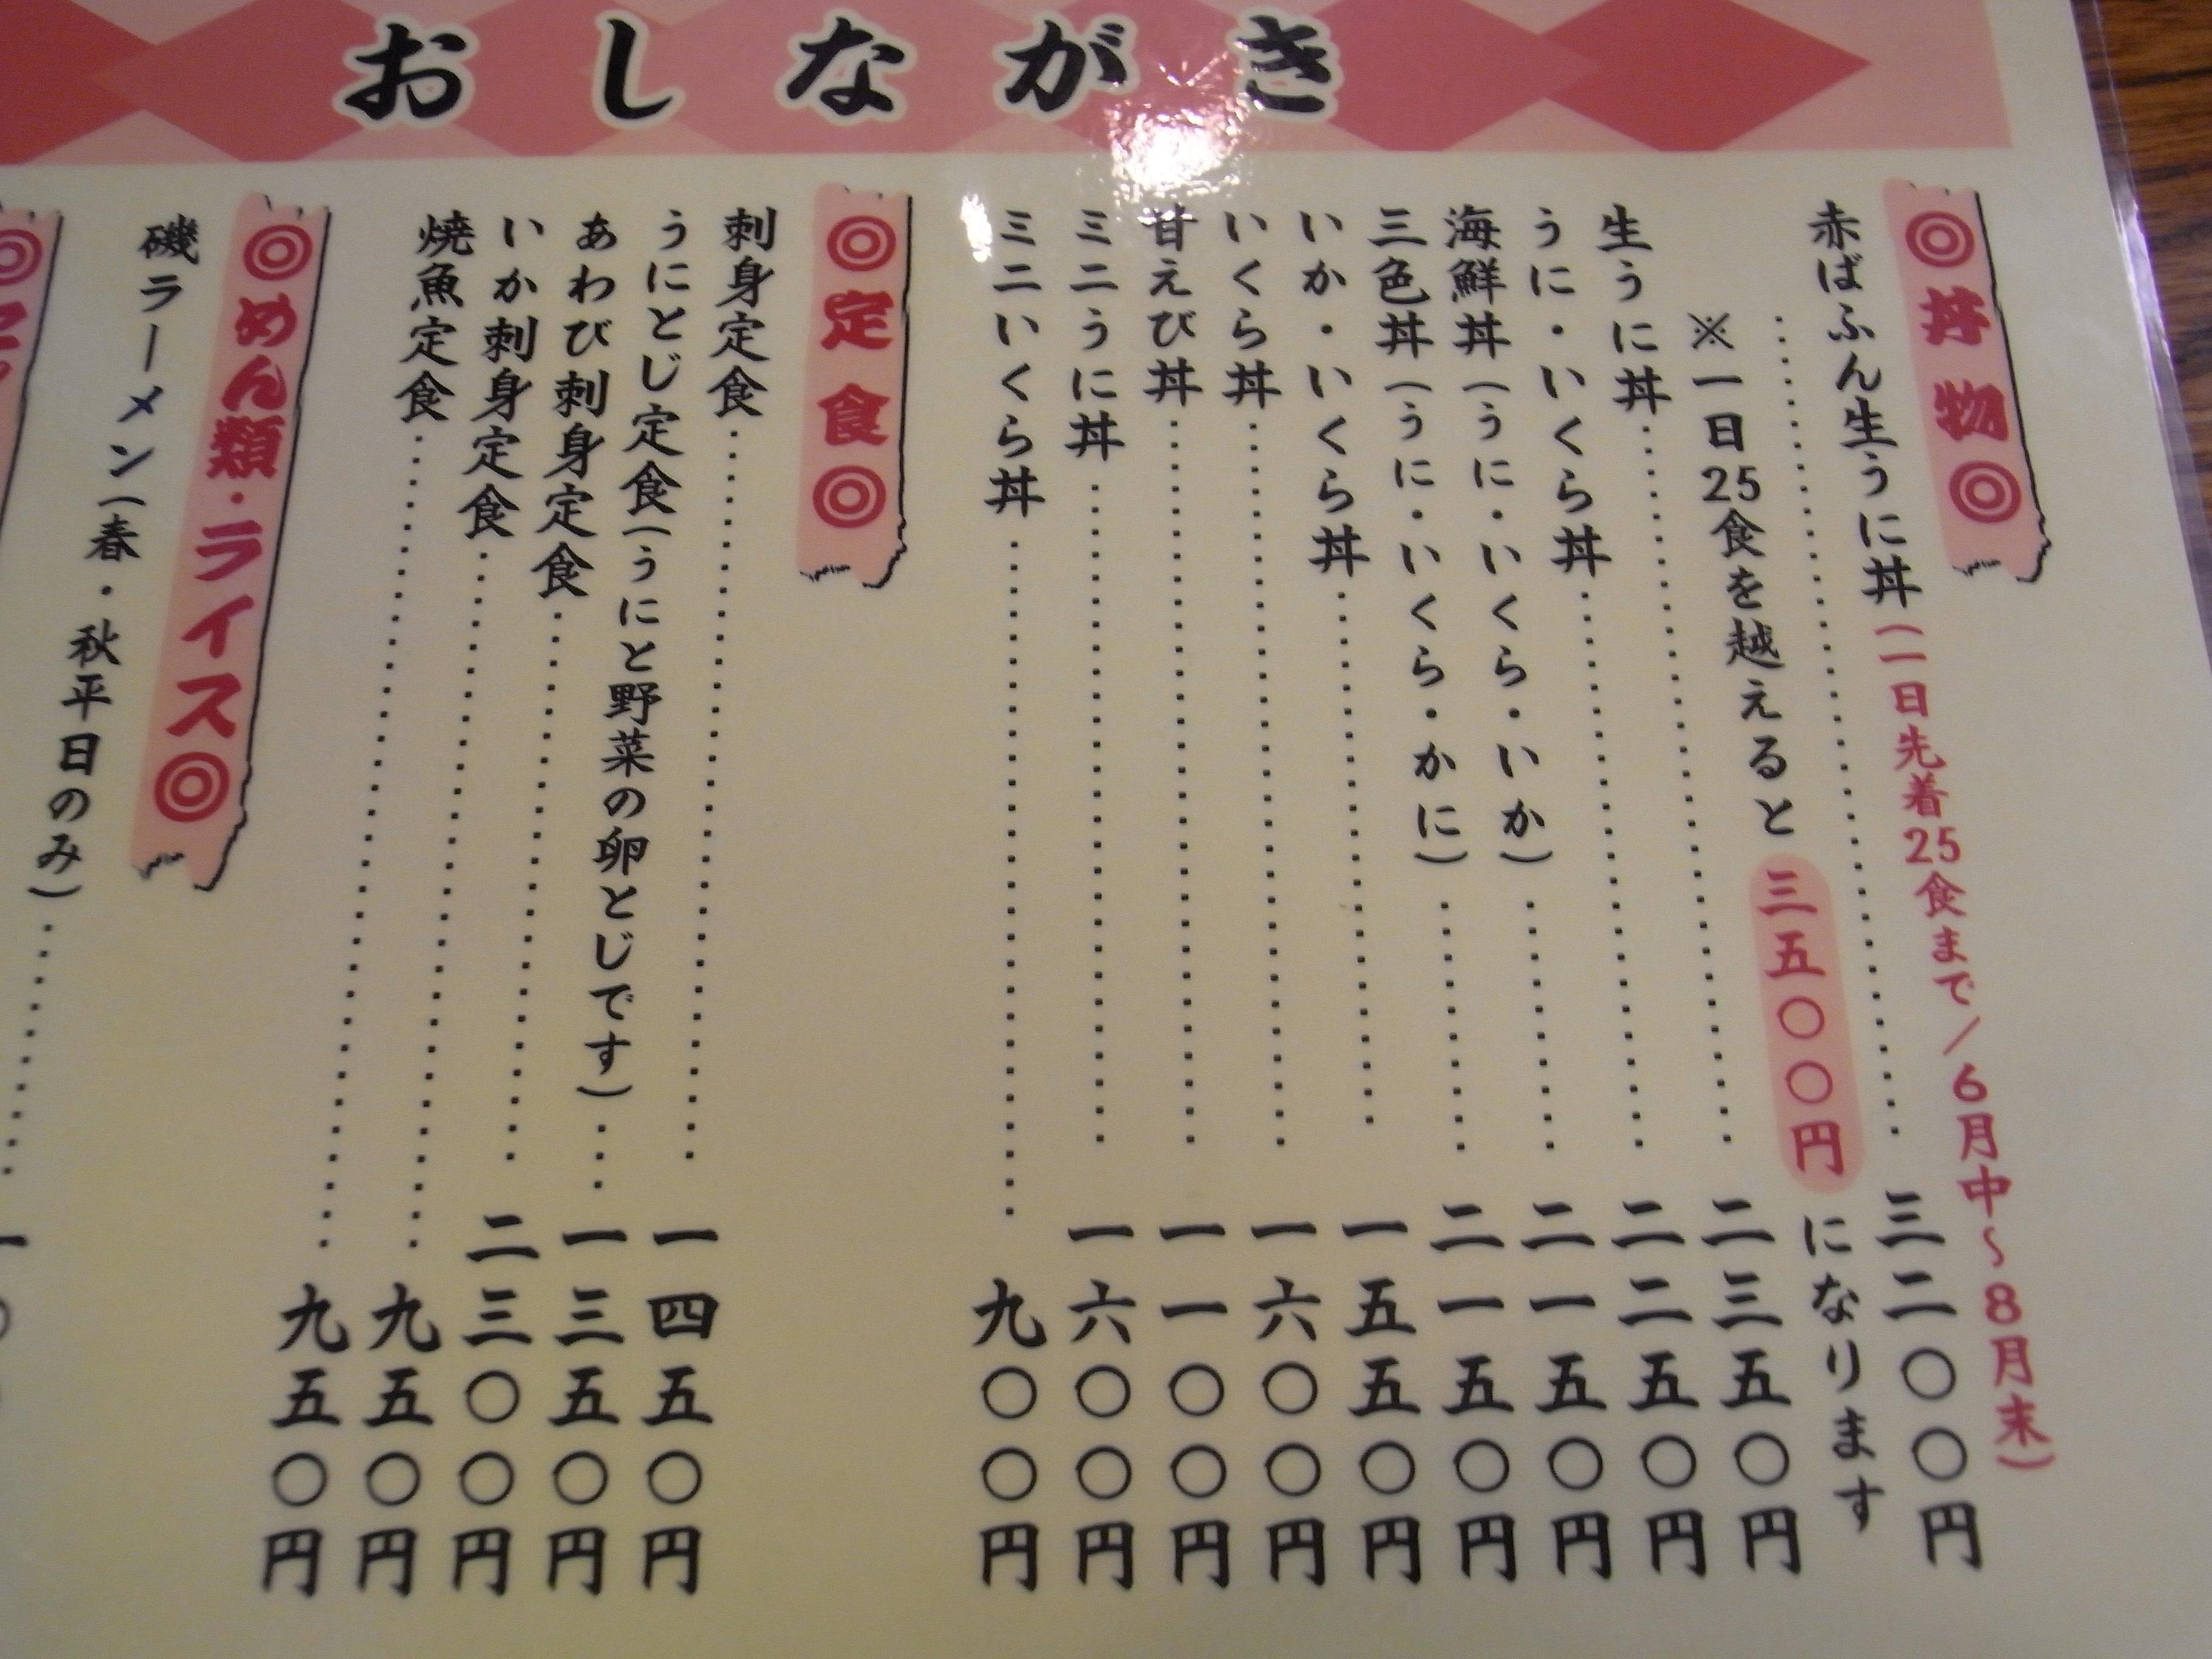 おしながき
◎丼物◎
赤ばふん生うに丼(一日先着25食まで/6月中~8月末)
……三二〇〇円
※一日25食を越えると三五〇〇円になります
生うに丼……二三五〇円
うに・いくら丼……二二五〇円
海鮮丼(うに・いくら・いか)……二一五〇円
三色丼(うに・いくら・かに)……二一五〇円
いか・いくら丼……一五五〇円
いくら丼……一六〇〇円
甘えび丼……一一〇〇円
ミニうに丼……一六〇〇円
ミニいくら丼……九〇〇円
◎定食◎
刺身定食……一四五〇円
うにとじ定食(うにと野菜の卵とじです)……一三五〇円
あわび刺身定食……二三〇〇円
いか刺身定食……九五〇円
焼魚定食……九五〇円
◎めん類・ライス◎
磯ラーメン(春・秋平日のみ)……